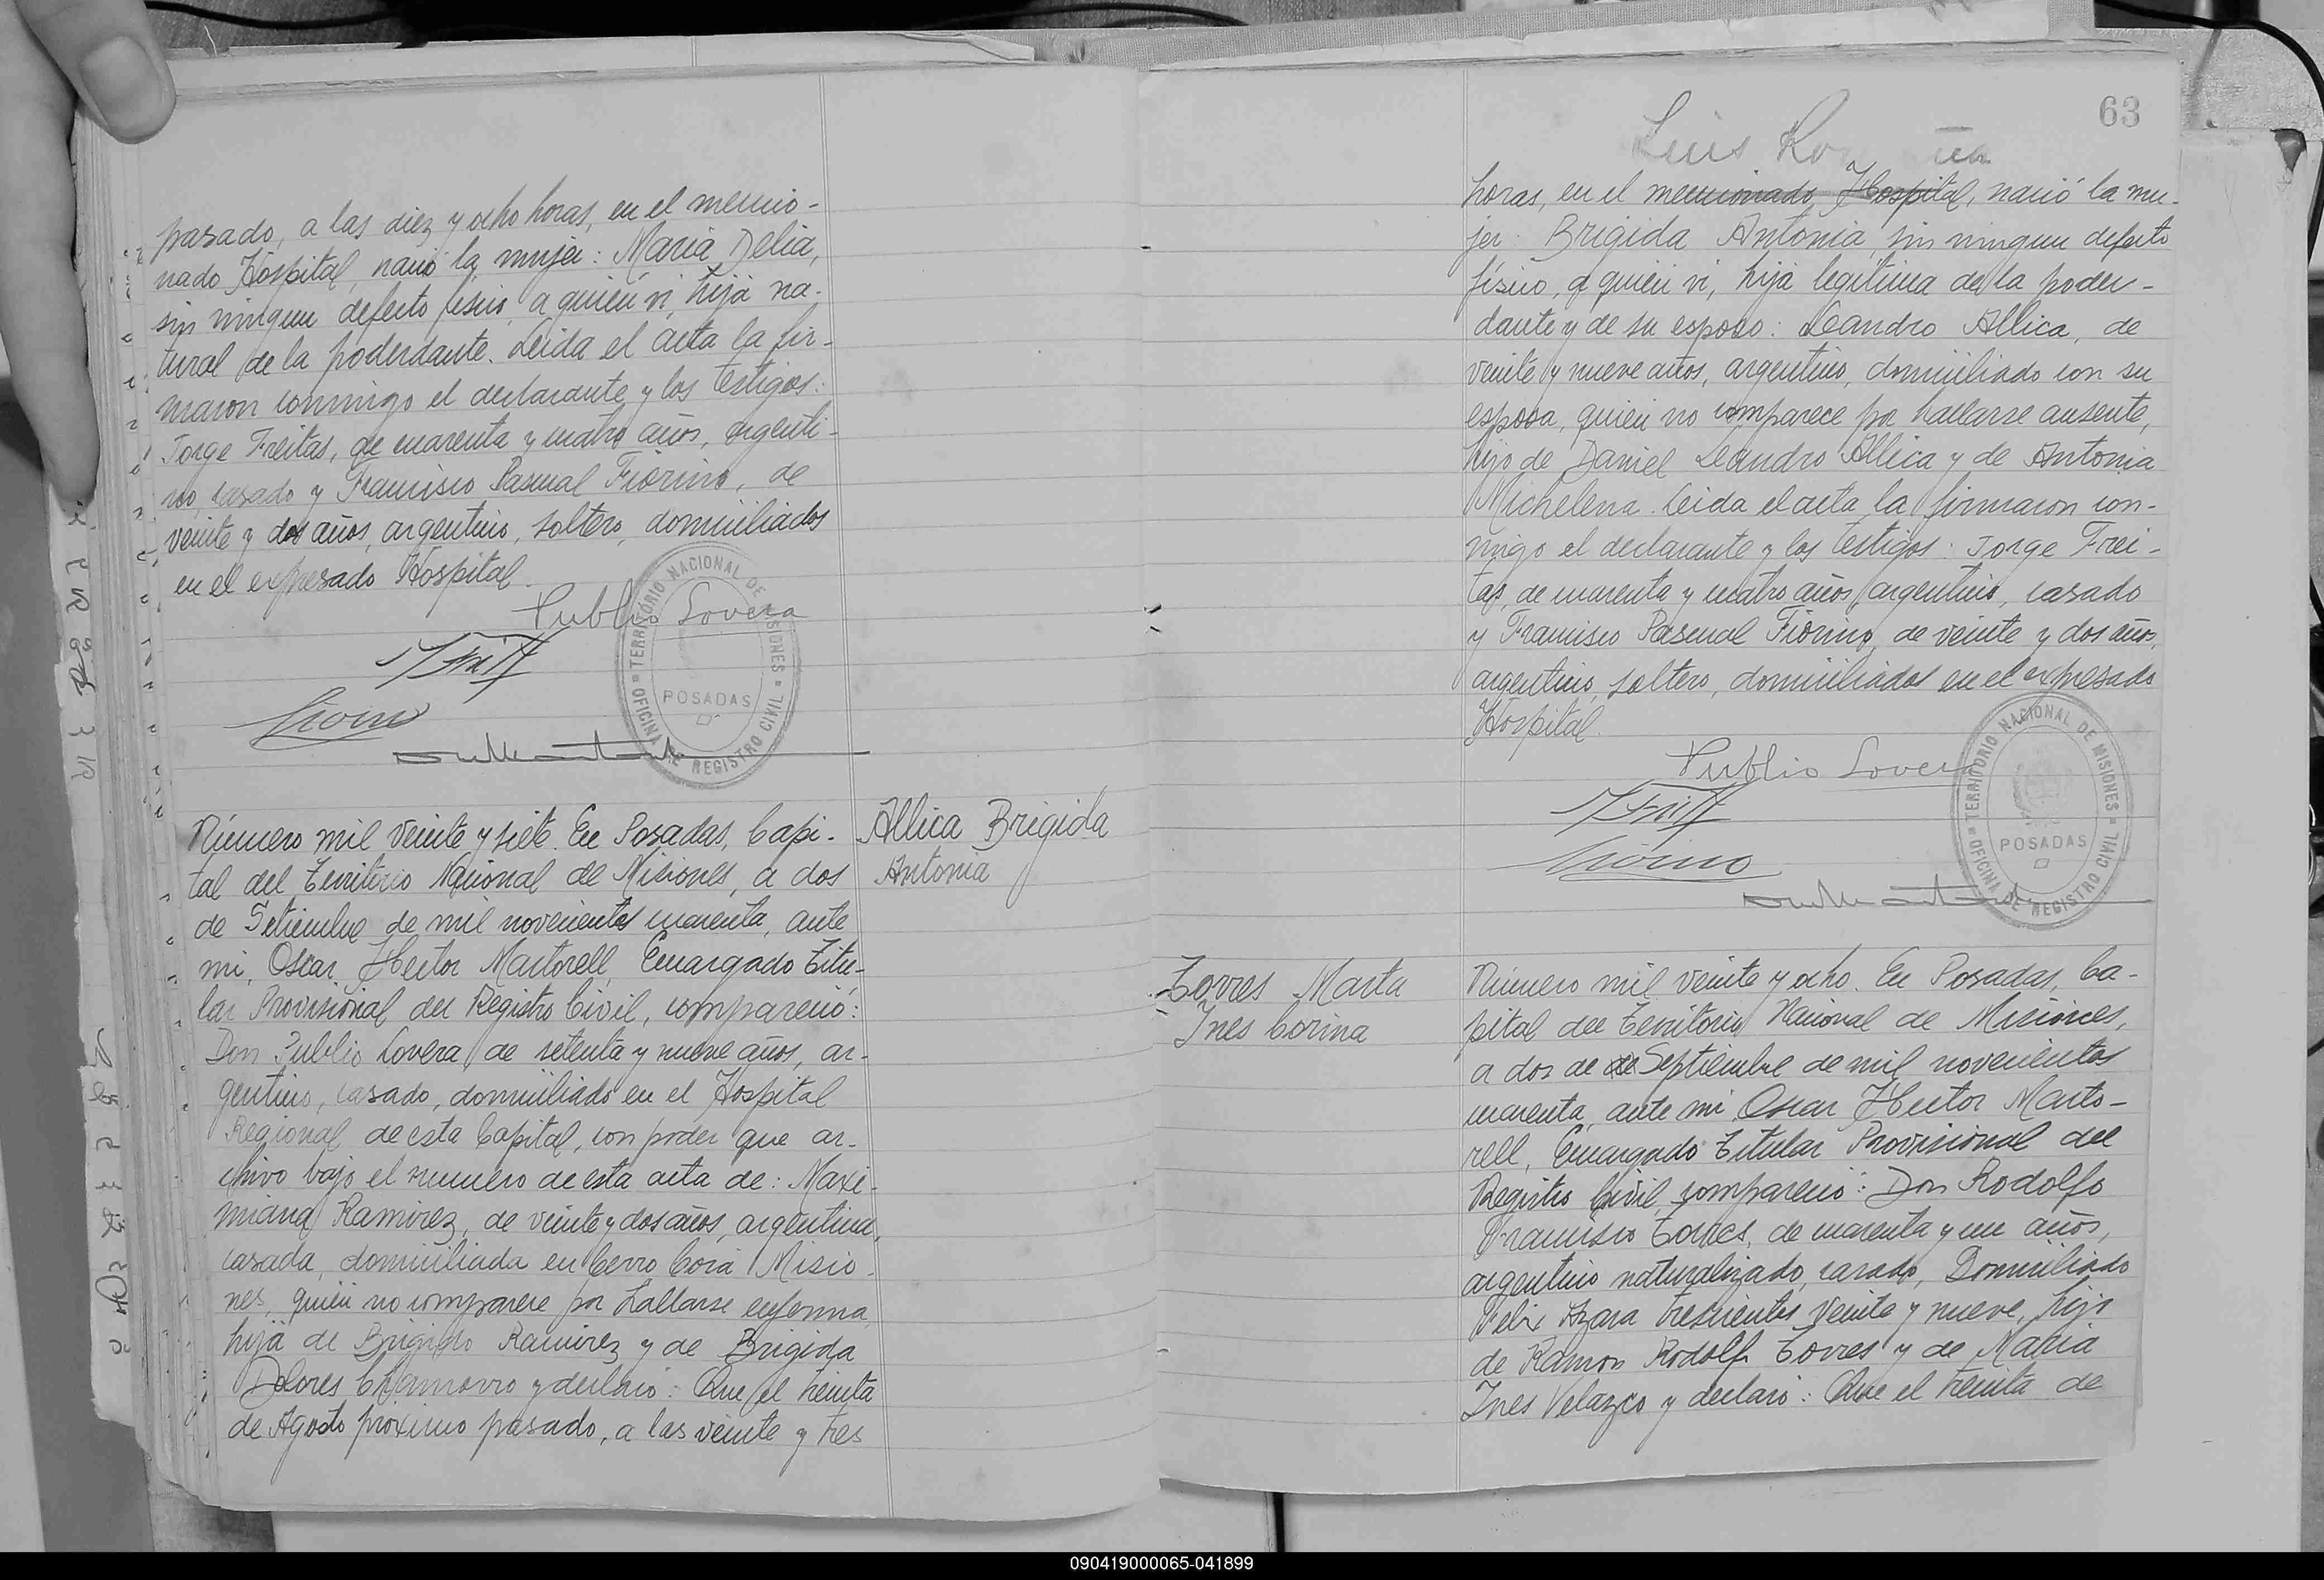 pasado, a las diez y ocho horas, en el mencio-
nado Hospital, nació la mujer: María Delia,
sin ningun defecto físico, a quién vi, hija na-
tural de la poderdante. Leida el acta la fir-
maron conmigo el declarante y los testigos:
Jorge Freitas, de cuarenta y cuatro años, argenti-
no, casado y Francisco Pascual Fiorino, de
veinte y dos años, argentino, soltero, domiciliados
en el expresado Hospital.
Publio Lovera
TERRITORIO NACIONAL DE MISIONES
POSADAS
OFICINA DE REGISTRO CIVIL
Número mil veinte y siete. En Posadas, Capi-
tal del Territorio Nacional de Misiones, a dos
de Setiembre de mil novecientos cuarenta, ante
mi, Oscar Hector Martorell, Encargado Titu-
lar Provisional del Registro Civil, compareció:
Don Publio Lovera, de setenta y nueve años, ar-
gentino, casado, domiciliado en el Hospital
Regional de esta Capital, con poder que ar-
chivo bajo el numero de esta acta de: Maxi-
miana Ramirez, de veinte y dos años, argentina,
casada, domiciliada en Cerro Corá Misio-
nes, quién no comparece por hallarse enferma,
hija de Brigido Ramirez y de Brigida
Dolores Chamorro y declaró: Que el treinta
de Agosto próximo pasado, a las veinte y tres
Allica Brigida
Antonia
63
Luis
horas, en el mencionado Hospital, nació la mu-
jer: Brigida Antonia, sin ningun defecto
físico, a quién vi, hija legítima de la poder-
dante y de su esposo: Leandro Allica, de
veinte y nueve años, argentino, domiciliado con su
esposa, quién no comparece por hallarse ausente,
hijo de Daniel Leandro Allica y de Antonia
Michelena. Leida el acta la firmaron con-
migo el declarante y los testigos: Jorge Frei-
tas, de cuarenta y cuatro años, argentino, casado
y Francisco Pascual Fiorino, de veinte y dos años,
argentino, soltero, domiciliados en el expresado
Hospital.
Publio Lovera
Fiorino
TERRITORIO NACIONAL DE MISIONES
POSADAS
OFICINA DE REGISTRO CIVIL
Torres Marta
Ines Corina
Número mil veinte y ocho. En Posadas, Ca-
pital del Territorio Nacional de Misiones,
a dos de de Septiembre de mil novecientos
cuarenta, ante mi, Oscar Hector Marto-
rell, Encargado Titular Provisional del
Registro Civil, compareció: Don Rodolfo
Francisco Torres, de cuarenta y un años,
argentino naturalizado, casado, Domiciliado
Felix Azara trescientos veinte y nueve, hijo
de Ramon Rodolfo Torres y de María
Ines Velazco y declaró: Que el treinta de
090419000065-041899